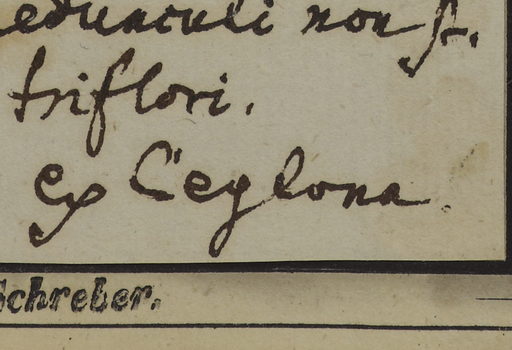 edunculi non f.
triflori.
ex Ceylona
Schreber.